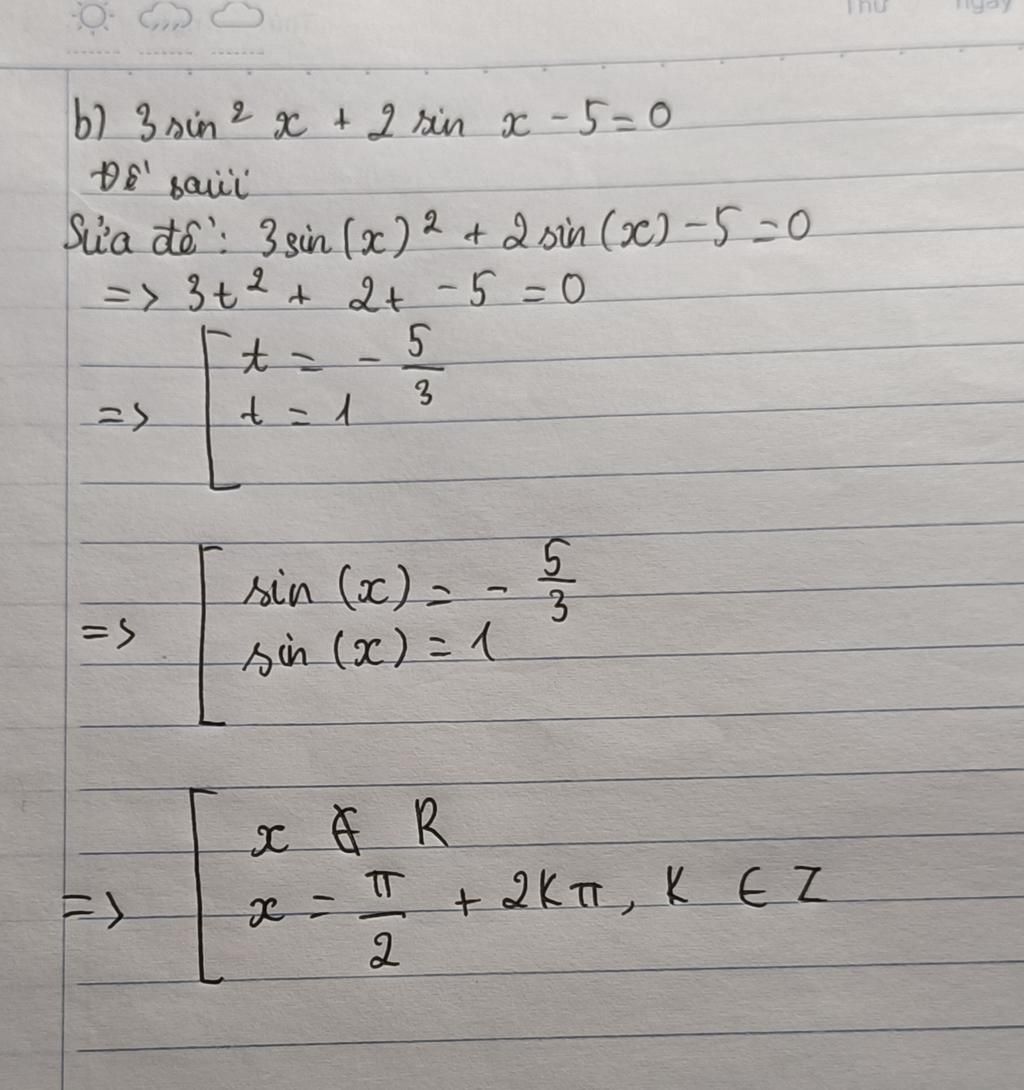 Thứ ngày
b) 3 sin² x + 2 sin x - 5 = 0
Đề saiii
Sửa đề: 3 sin(x)² + 2 sin(x) - 5 = 0
=> 3t² + 2t - 5 = 0
=> [ t = - 5/3
t = 1
=> [ sin (x) = - 5/3
sin (x) = 1
=> [ x ∉ R
x = π/2 + 2Kπ, K ∈ Z